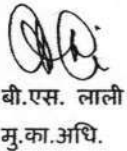 बी.एस. लाली
मु.का.अधि.